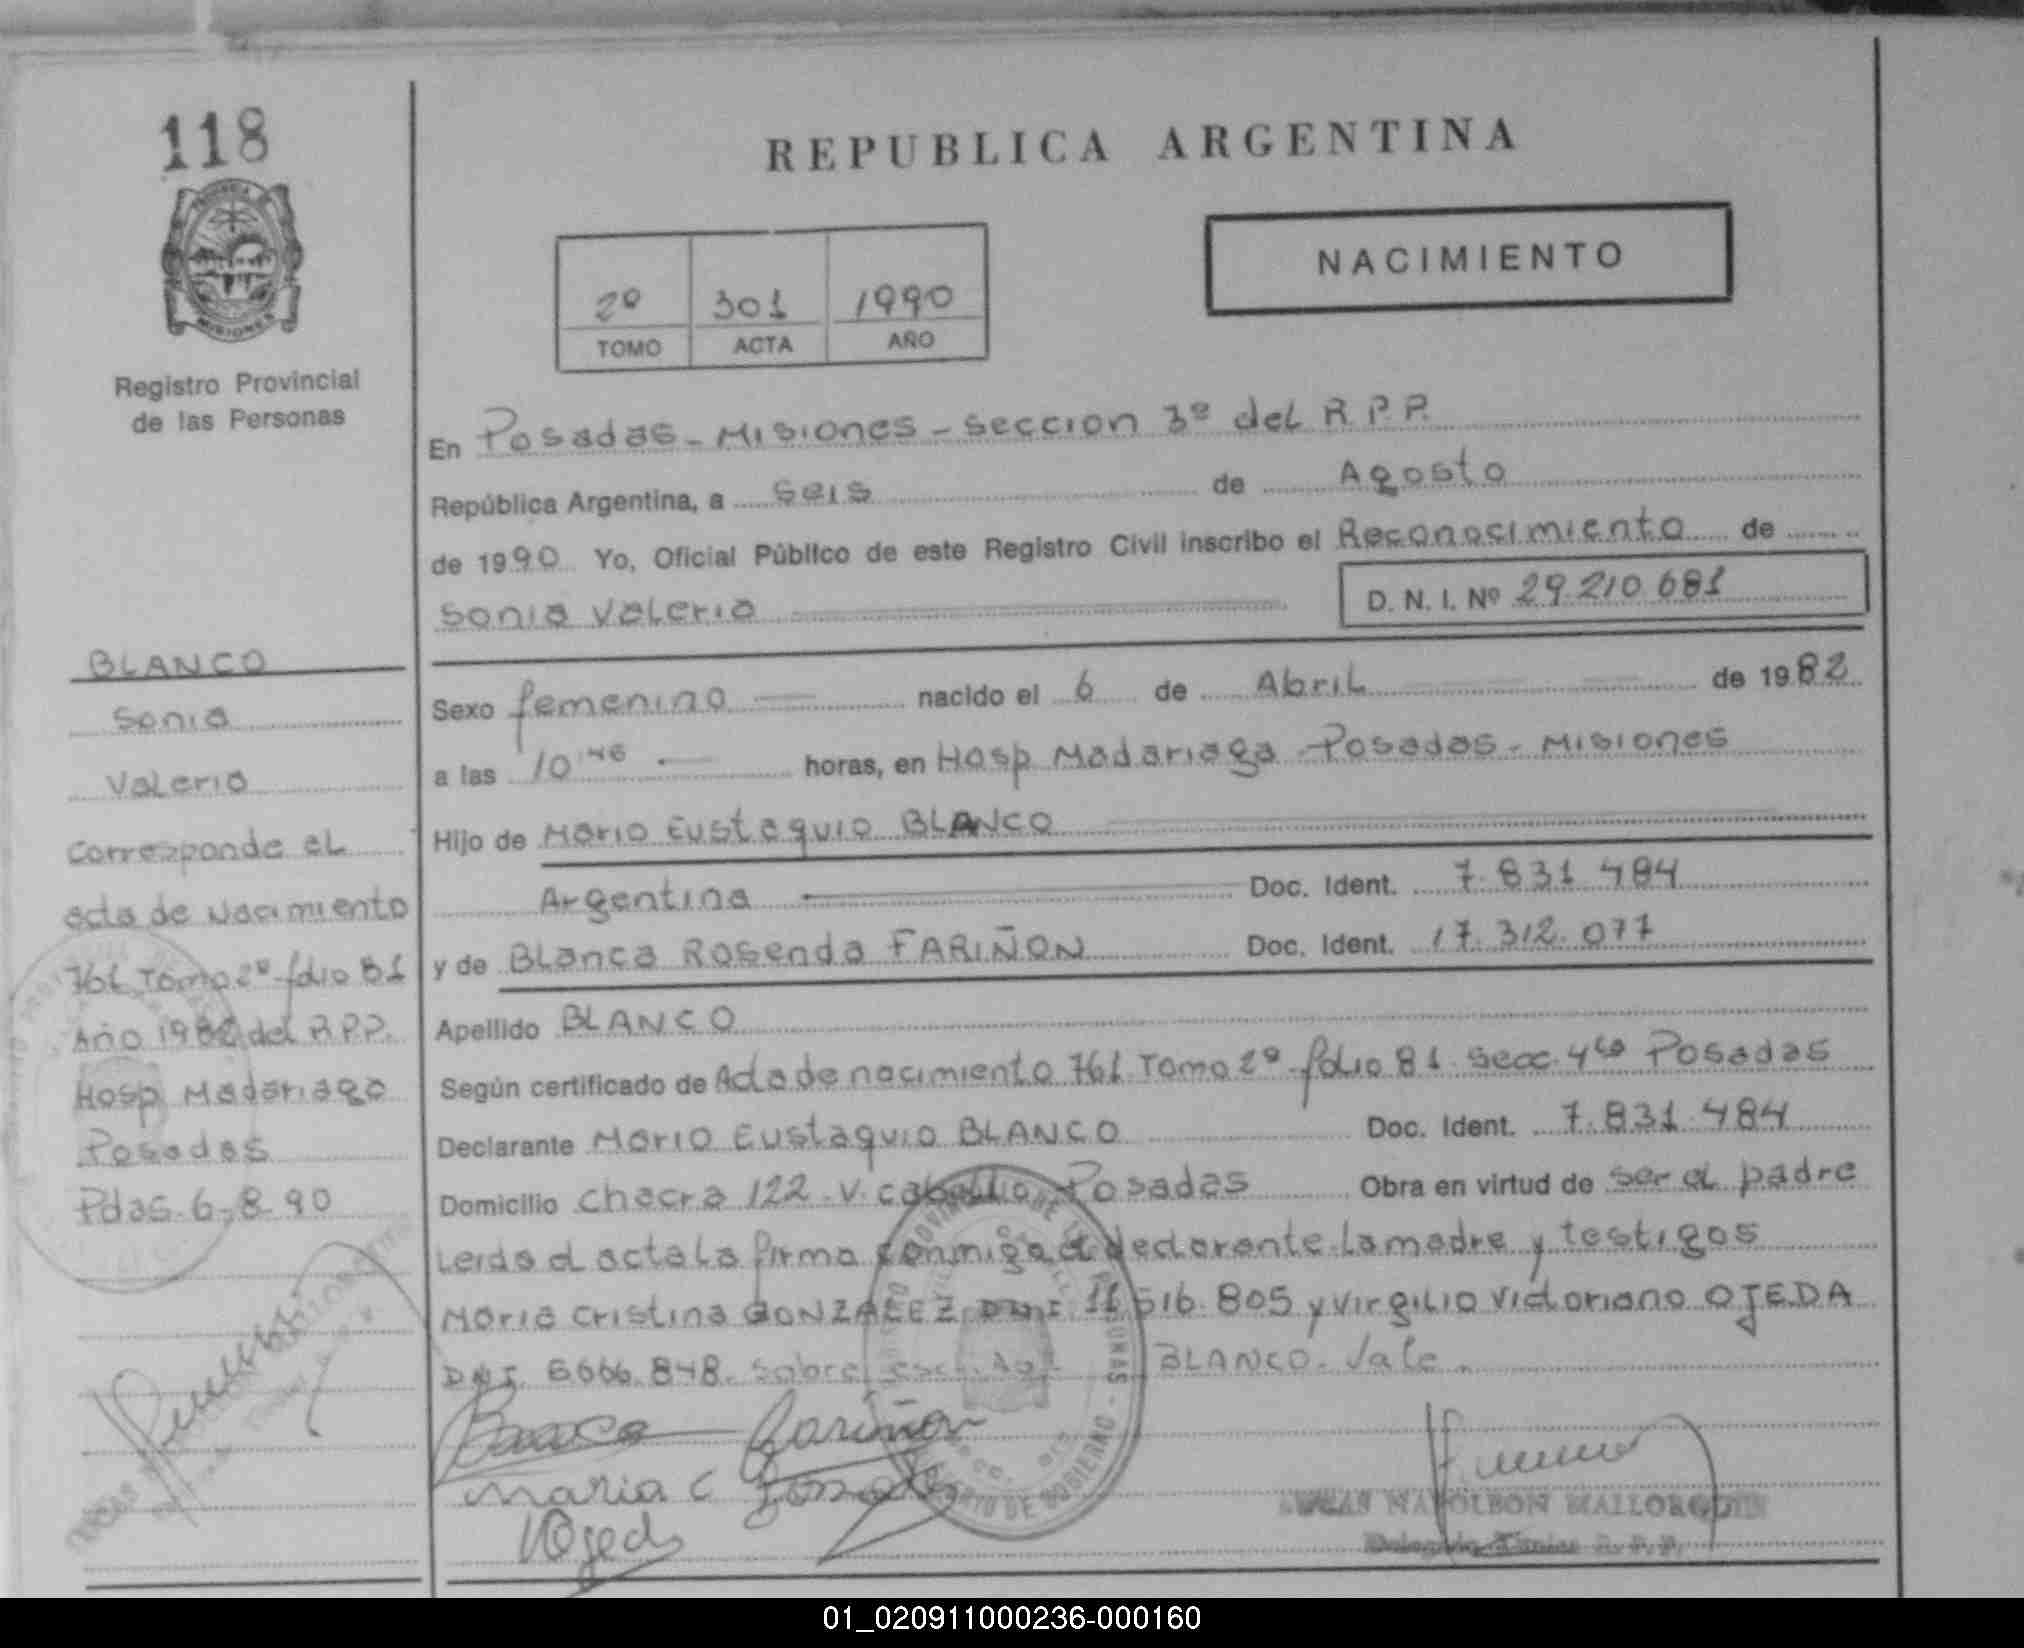 118
Registro Provincial
de las Personas
REPUBLICA ARGENTINA
NACIMIENTO
2º 301 1990
TOMO ACTA AÑO
En Posadas - Misiones - Seccion 3º del R.P.P.
República Argentina, a seis de Agosto
de 1990 Yo, Oficial Público de este Registro Civil inscribo el Reconocimiento de
Sonia Valeria D. N. I. Nº 29.210.681
Sexo femenino nacido el 6 de Abril de 1982
a las 10 horas, en Hosp Madariaga - Posadas - Misiones
Hijo de Mario Eustaquio BLANCO
Argentina Doc. Ident. 7.831.484
y de Blanca Rosenda FARIÑON Doc. Ident. 17.312.077
Apellido BLANCO
Según certificado de Acta de nacimiento 761 Tomo 2º folio 81 Secc. 4ta Posadas
Declarante Mario Eustaquio BLANCO Doc. Ident. 7.831.484
Domicilio Chacra 122 - V. Cabello Posadas Obra en virtud de ser el padre
Leida el acta la firma conmigo el declarante la madre y testigos
Maria Cristina GONZALEZ DNI 11 516.805 y Virgilio Victoriano OJEDA
DNI 6666.848. Sobre BLANCO - Vale.
BLANCO
Sonia
Valeria
Corresponde al
acta de Nacimiento
761 Tomo 2º folio 81
Año 1982 del R.P.P.
Hosp Madariaga
Posadas
Pdas. 6-8-90
Blanca Fariñon
Maria C Gonzalez
VOjeda
NAPOLEON MALLORQUIN
01_020911000236-000160